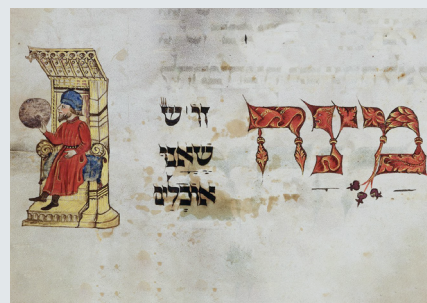 מצה
זו ש
שאנו
אוכלים